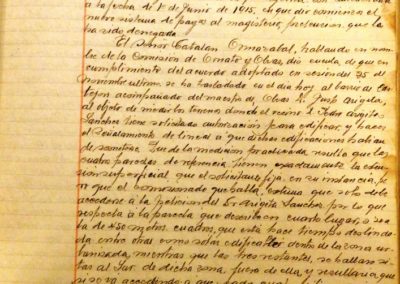 a la fecha de 1º de Junio de 1915, si que dé comienzo el
nuevo sistema de pagos al magisterio, pretension, que le
ha sido denegada.
El Señor Catalan Onmarabal, hablando en nom-
bre de la Comision de Ornato y Obras, dió cuenta, de que en
cumplimiento del acuerdo adoptado en sesion del 25 del
Noviembre ultimo, se ha trasladado en el dia hoy al barrio de Cas-
tejon acompañado del maestro de Obras D. José
al objeto de medir los terrenos donde el vecino D. Pedro Argita
Sanchez tiene solicitada autorizacion para edificar y hacer
el señalamiento de linea a que dichas edificaciones habian
de someterse. Que de la medicion practicada resulta que las
cuatro parcelas de referencia tienen exactamente la exten-
sion superficial que el solicitante fija, en su instancia, pe-
ro que el comisionado que habla, estima que solo debe
accederse a la peticion del Sr Argita Sanchez por lo que
respecta a la parcela que describe en cuarto lugar, o sea
la de 450 metros cuadros, que está hace tiempo destina-
da entre otras como solar edificable dentro de la zona ur-
banizada, mientras que las tres restantes, se hallan si-
tas al Sur de dicha zona, fuera de ella, y resultaria que